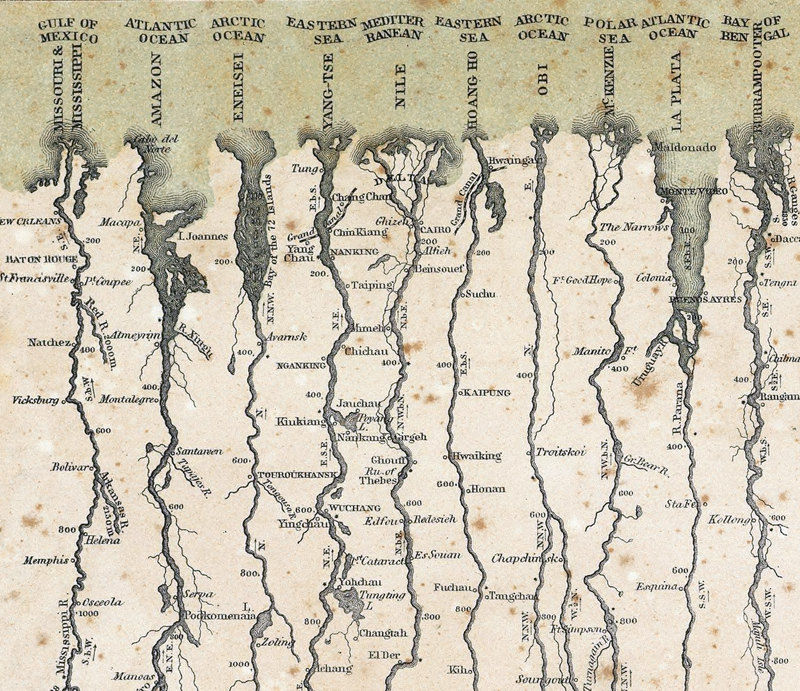 GULF OF
MEXICO
ATLANTIC
OCEAN
ARCTIC
OCEAN
EASTERN
SEA
MEDITER
RANEAN
EASTERN
SEA
ARCTIC
OCEAN
POLAR
SEA
ATLANTIC
OCEAN
BAY OF
BEN GAL
MISSOURI &
MISSISSIPPI
AMAZON
ENEISEI
YANG-TSE
NILE
HOANG HO
OBI
McKENZIE
LA PLATA
BURRAMPOOTER
NEW ORLEANS
S.E.
200
BATON ROUGE
St Francisville
Pt Coupee
Red R.
2000m
Natchez
400
S.b.W.
Vicksburg
600
Bolivar
Arkansas R.
2150m
800
Helena
Memphis
Osceola
1000
Mississippi R.
S.b.W.
Cabo del
Norte
Macapa
N.E.
I. Joannes
200
Almeyrim
R. Xingu
400
Montalegre
Santarem
Tapajos R.
600
Serpa
800
E.N.E.
Manoas
Bay of the 72 Islands
200
N.N.W.
Avarnsk
400
N.
600
TOUROUKHANSK
Tongousca R.
N.
800
L.
Podkomenaia
Zoling
1000
Tung
E.b.S.
Chang Chan
Grand Canal
Chin Kiang
Yang
Chau
NANKING
200
Taiping
N.E.
Chichau
NGANKING
400
Jauchau
Kiukiang
Poyang
L.
Nankang
E.S.E.
600
WUCHANG
Yingchau
N.E.
Yohchau
Tungting
L.
800
Changtah
Ichang
DELTA
Ghizeh
CAIRO
200
Atfieh
Beinsouef
N.b.E.
Mimeh
400
N.N.W.b.N.
Girgeh
Ghouft
Ru. of
Thebes
600
Edfou
Redesieh
N.b.E.
EsSouan
1st Cataract
800
El Der
Hwaingan
Grand Canal
200
Suchu
E.b.S.
400
KAIPUNG
Hwaiking
Honan
600
Fuchau
Tangchan
800
Kih
E.
200
N.
400
Troitskoi
600
N.N.W.
Chapchinsk
W.b.N.
800
N.N.W.
Sourgout
The Narrows
200
Ft Good Hope
Manito
Ft
400
N.W.b.N.
Gr. Bear R.
600
Ft Simpson
800
N.W.
Maldonado
MONTE VIDEO
100
S.E.b.E.
Colonia
BUENOS AYRES
200
Uruguay R.
R. Parana
400
Sta Fe
600
Esquina
S.S.W.
800
R. Ganges
S.
Dacca
S.S.W.
200
Tengra
S.
Chilma
S.b.E.
400
Rangam
W.b.S.
600
Kollong
W.S.W.
800